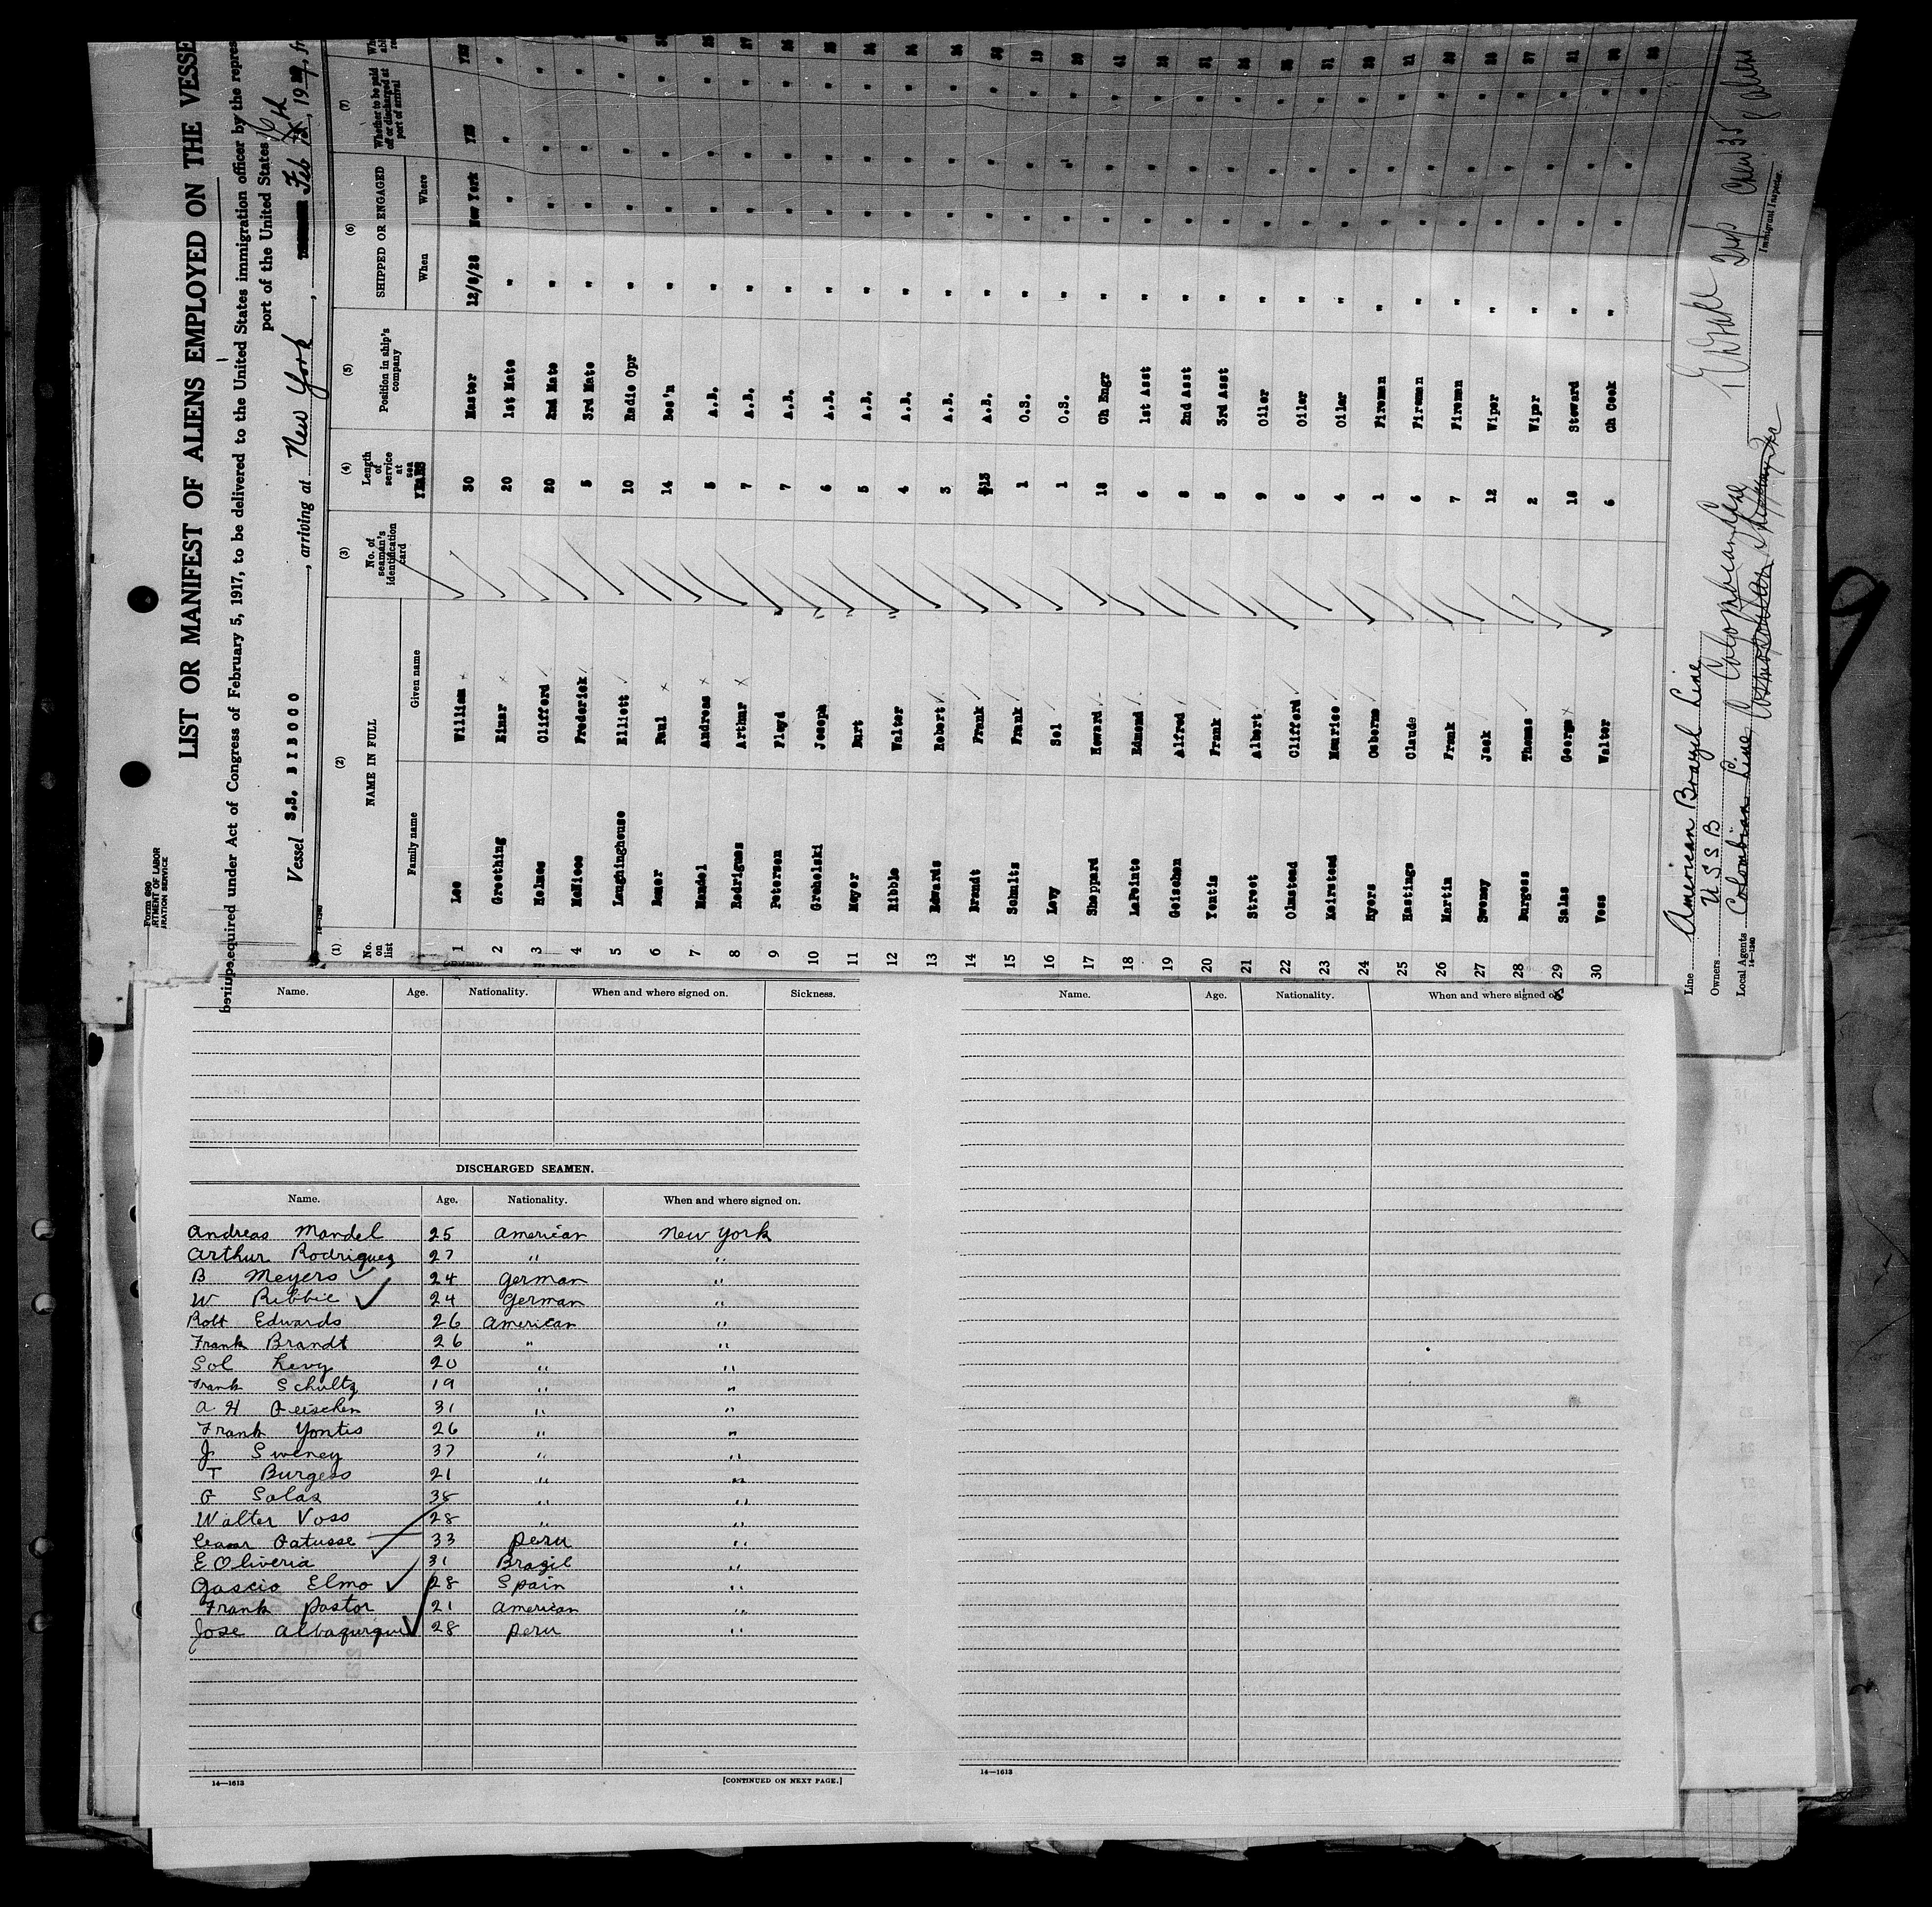 Form 680
LIST OR MANIFEST OF ALIENS EMPLOYED ON THE VESSE
required under Act of Congress of February 5, 1917, to be delivered to the United States immigration officer by the repres
port of the United States
Vessel S.S. BIBOCO, arriving at New York, Feb 19
(1) (2) (3) (4) (5) (6) (7)
No. on list NAME IN FULL No. of seaman's identification card Length of service at sea Position in ship's company SHIPPED OR ENGAGED Whether to be paid off or discharged at port of arrival
Family name Given name YEARS When Where
1 Lee William 30 Master 12/6/28 New York YES YES
2 Greething Einar 20 1st Mate " " " "
3 Holmes Clifford 20 2nd Mate " " " "
4 McNiece Frederick 5 3rd Mate " " " "
5 Laughinghouse Elliott 10 Radio Opr " " " "
6 Paul 14 Bos'n " " " "
7 Mandel Andreas 5 A.B. " " " " 25
8 Rodrigues Arthur 7 A.B. " " " " 27
9 Petersen Floyd 7 A.B. " " " " 26
10 Grehelski Joseph 6 A.B. " " " " 25
11 Meyer Burt 5 A.B. " " " " 24
12 Ribble Walter 4 A.B. " " " " 24
13 Edwards Robert 3 A.B. " " " " 26
14 Brandt Frank 13 A.B. " " " "
15 Schmitz Frank 1 O.S. " " " " 19
16 Levy Sol 1 O.S. " " " " 20
17 Sheppard Howard 18 Ch Engr " " " " 41
18 LaPointe Edmond 6 1st Asst " " " "
19 Geischen Alfred 8 2nd Asst " " " " 31
20 Yentis Frank 5 3rd Asst " " " " 26
21 Street Albert 9 Oiler " " " "
22 Olmstead Clifford 6 Oiler " " " " 31
23 Keirstead Maurice 4 Oiler " " " "
24 Myers Osborne 1 Fireman " " " " 21
25 Hastings Claude 6 Fireman " " " "
26 Martin Frank 7 Fireman " " " "
27 Sweney Jack 12 Wiper " " " " 37
28 Burgess Thomas 2 Wiper " " " " 21
29 Salas George 18 Steward " " " " 38
30 Voss Walter 6 Ch Cook " " " " 28
Line American Brazil Line
Owners U.S.S.B
Local Agents Colombian Line
14-1240
Immigrant Inspector.
Name. Age. Nationality. When and where signed on. Sickness.
DISCHARGED SEAMEN.
Name. Age. Nationality. When and where signed on.
Andreas Mandel 25 American New York
Arthur Rodriguez 27 " "
B Meyers 24 German "
W Ribbie 24 German "
Robt Edwards 26 American "
Frank Brandt 26 " "
Sol Levy 20 " "
Frank Schultz 19 " "
A H Geischen 31 " "
Frank Yontis 26 " "
J Sweney 37 " "
T Burgess 21 " "
G Salas 38 " "
Walter Voss 28 " "
Ceasar Gatusse 33 Peru "
E Oliveria 31 Brazil "
Gascio Elmo 28 Spain "
Frank Pastor 21 American "
Jose Albaqurque 28 Peru "
14—1613 [CONTINUED ON NEXT PAGE.]
Name. Age. Nationality. When and where signed on.
14—1613